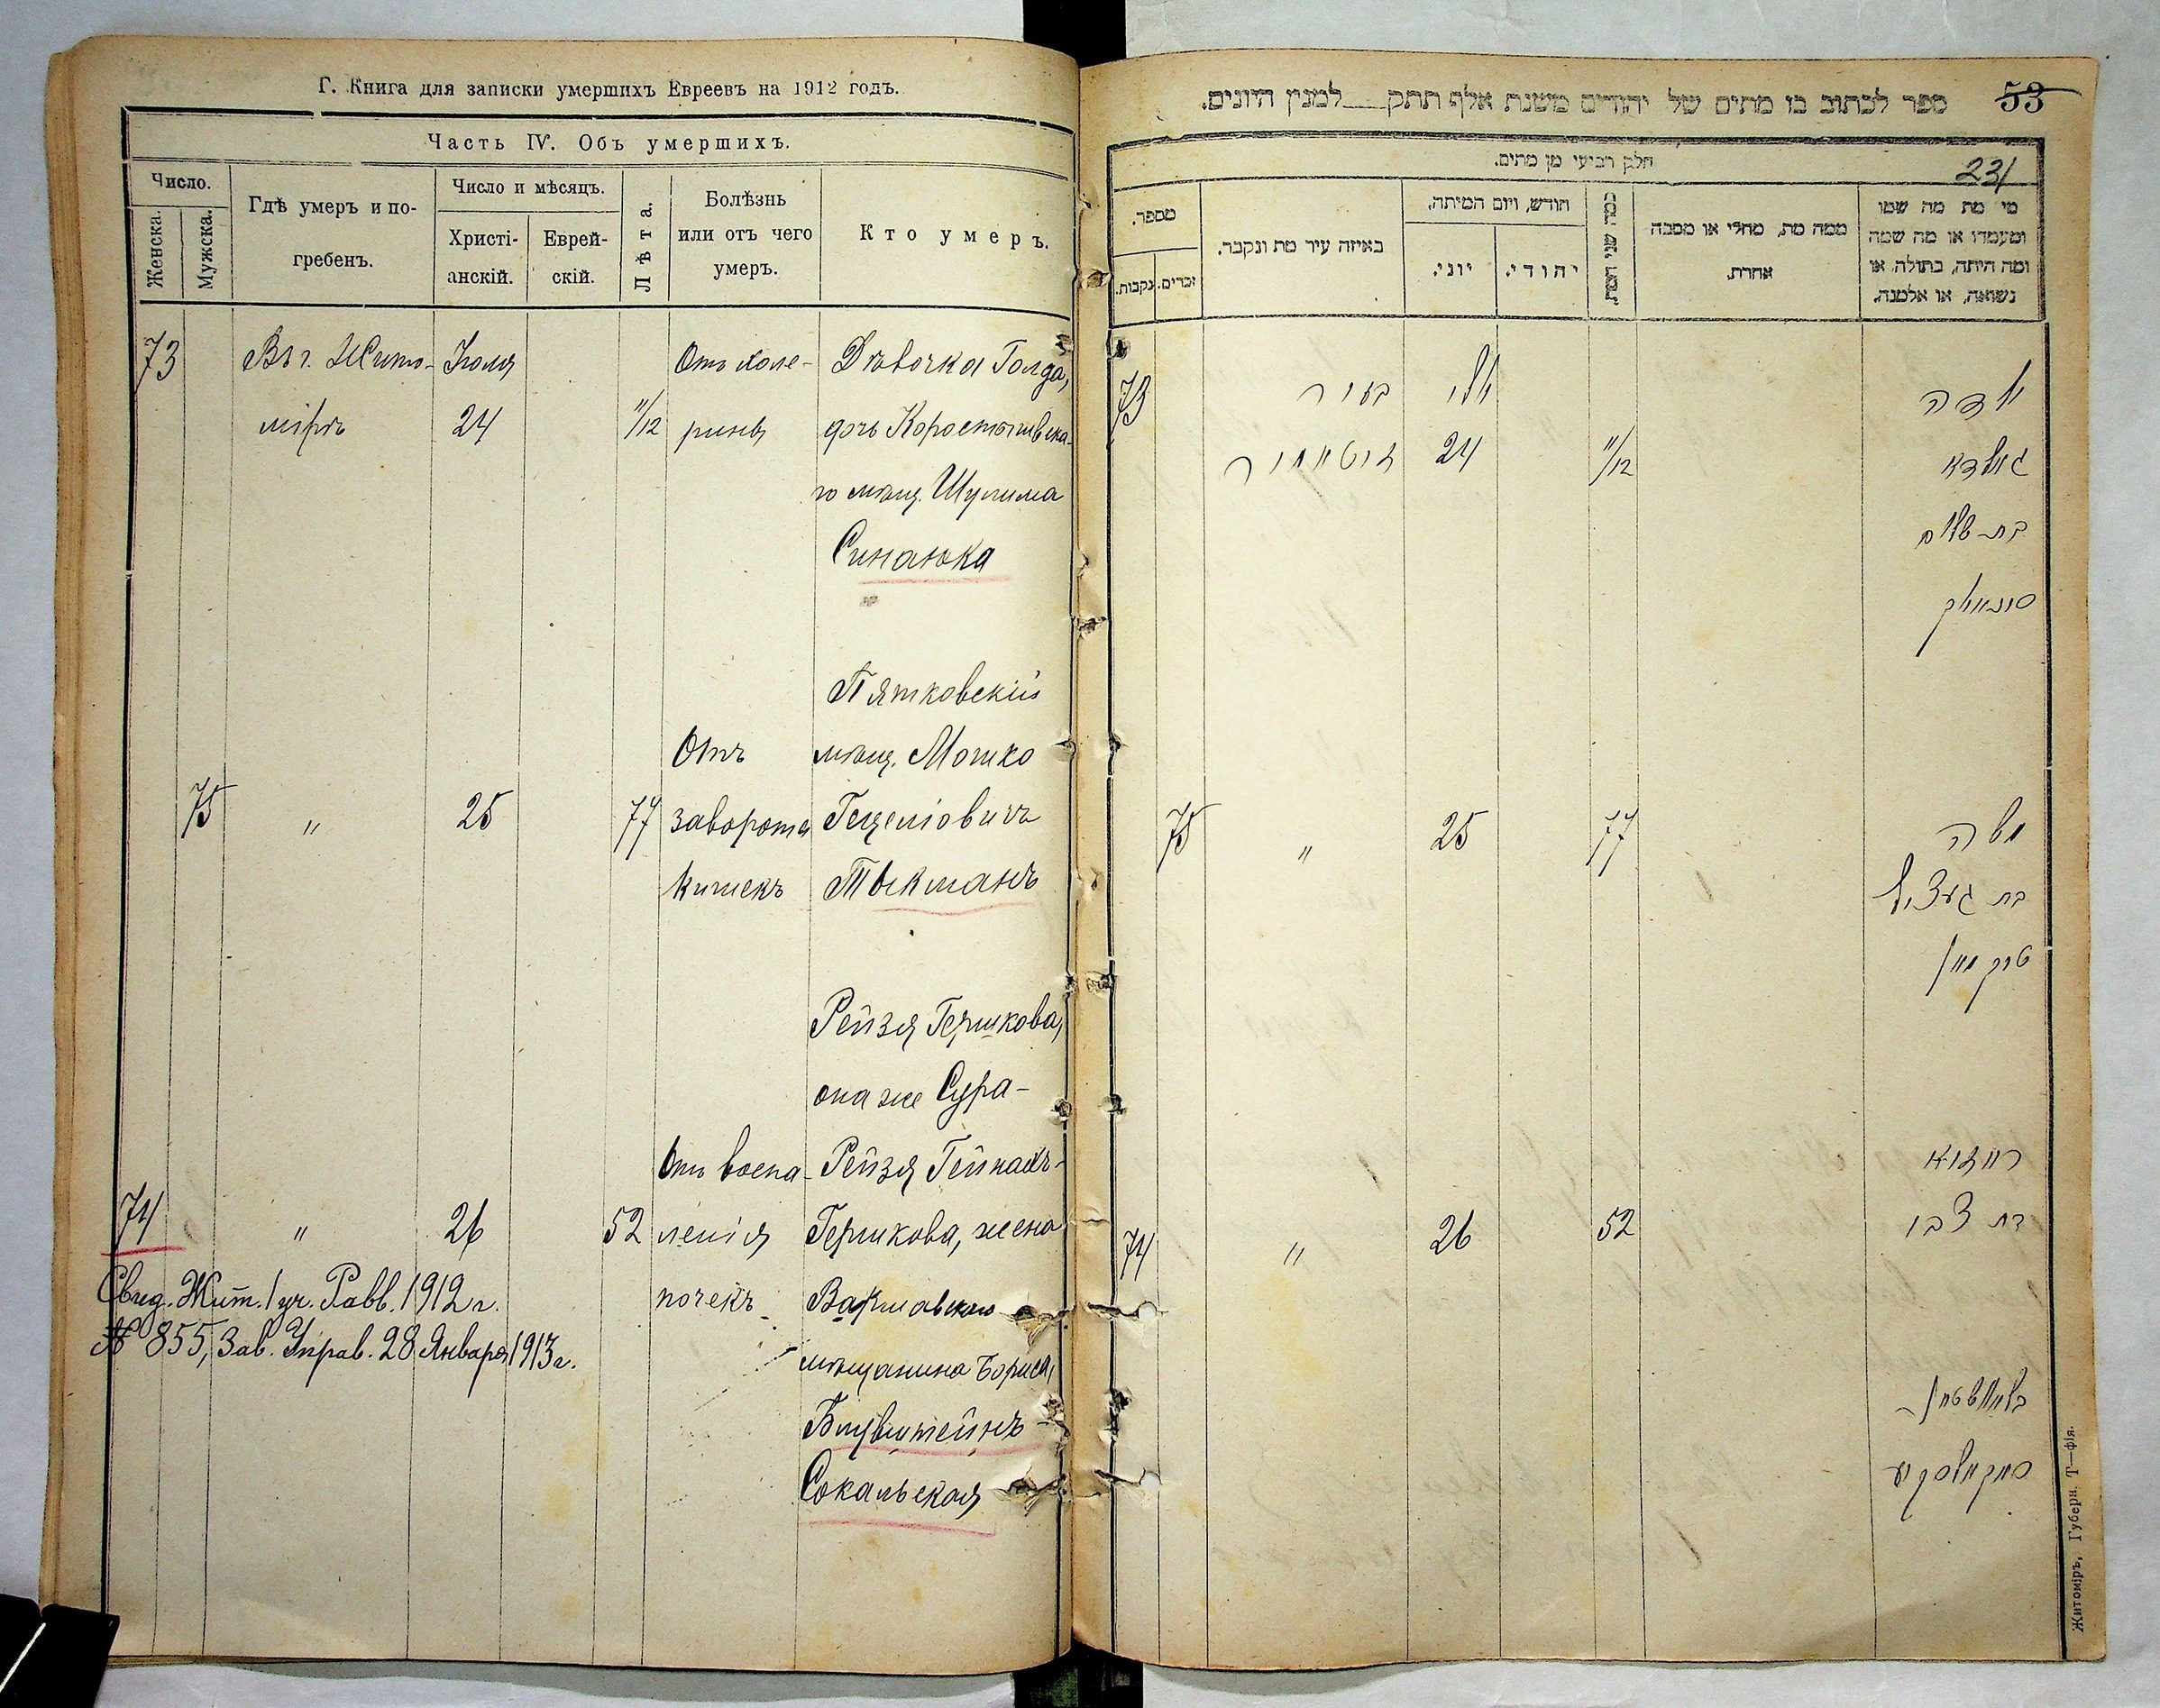 Г. Книга для записки умершихъ Евреевъ на 1912 годъ.
Часть IV. Объ умершихъ.
Число.
Женска.
Мужска.
Гдѣ умеръ и по-
гребенъ.
Число и мѣсяцъ.
Христі-
анскій.
Еврей-
скій.
Лѣта.
Болѣзнь
или отъ чего
умеръ.
Кто умеръ.
73 Въ г. Жито- Іюля Отъ холе- Дѣвочка Голда,
мірѣ 24 11/12 рины дочь Коростышевска-
го мѣщ. Шулима
Синанюка
Пятковскій
Отъ мѣщ. Мошко
75 " 25 77 заворота Гецеліовичъ
кишекъ Тыкманъ
Рейзя Гершкова,
она же Сура-
Отъ воспа- Рейзя Гейнахъ-
74 " 26 52 ленія Гершкова, жена
Свид. Жит. / уч. Равв. 1912 г. почекъ Варшавскаго
№ 855, Зав. Управ. 28 Января 1913 г. мѣщанина Бориса,
Блувштейнъ-
Сокальская
ספר לכתוב בו מתים של יהודים משנת אלף תתק למנין היונים.
53
חלק רביעי מן מתים.
231
מספר.
נקבות.
זכרים.
באיזה עיר מת ונקבר.
חודש, ויום המיתה.
יוני.
יהודי.
כמה שני המת.
ממה מת, מחלי או מסבה
אחרת.
מי מת מה שמו
ומעמדו או מה שמה
ומה היתה, בתולה, או
נשואה, או אלמנה.
73 בעיר יולי ילדה
זיטאמיר 24 11/12 גאלדא
בת שלום
סינאניוק
75 " 25 77 משה
בת געציל
טיקמאן
רייזיא
74 " 26 52 בת צבי
בלואוושטיין
סאקאלסקיע
Житоміръ, Губерн. Т—фія.